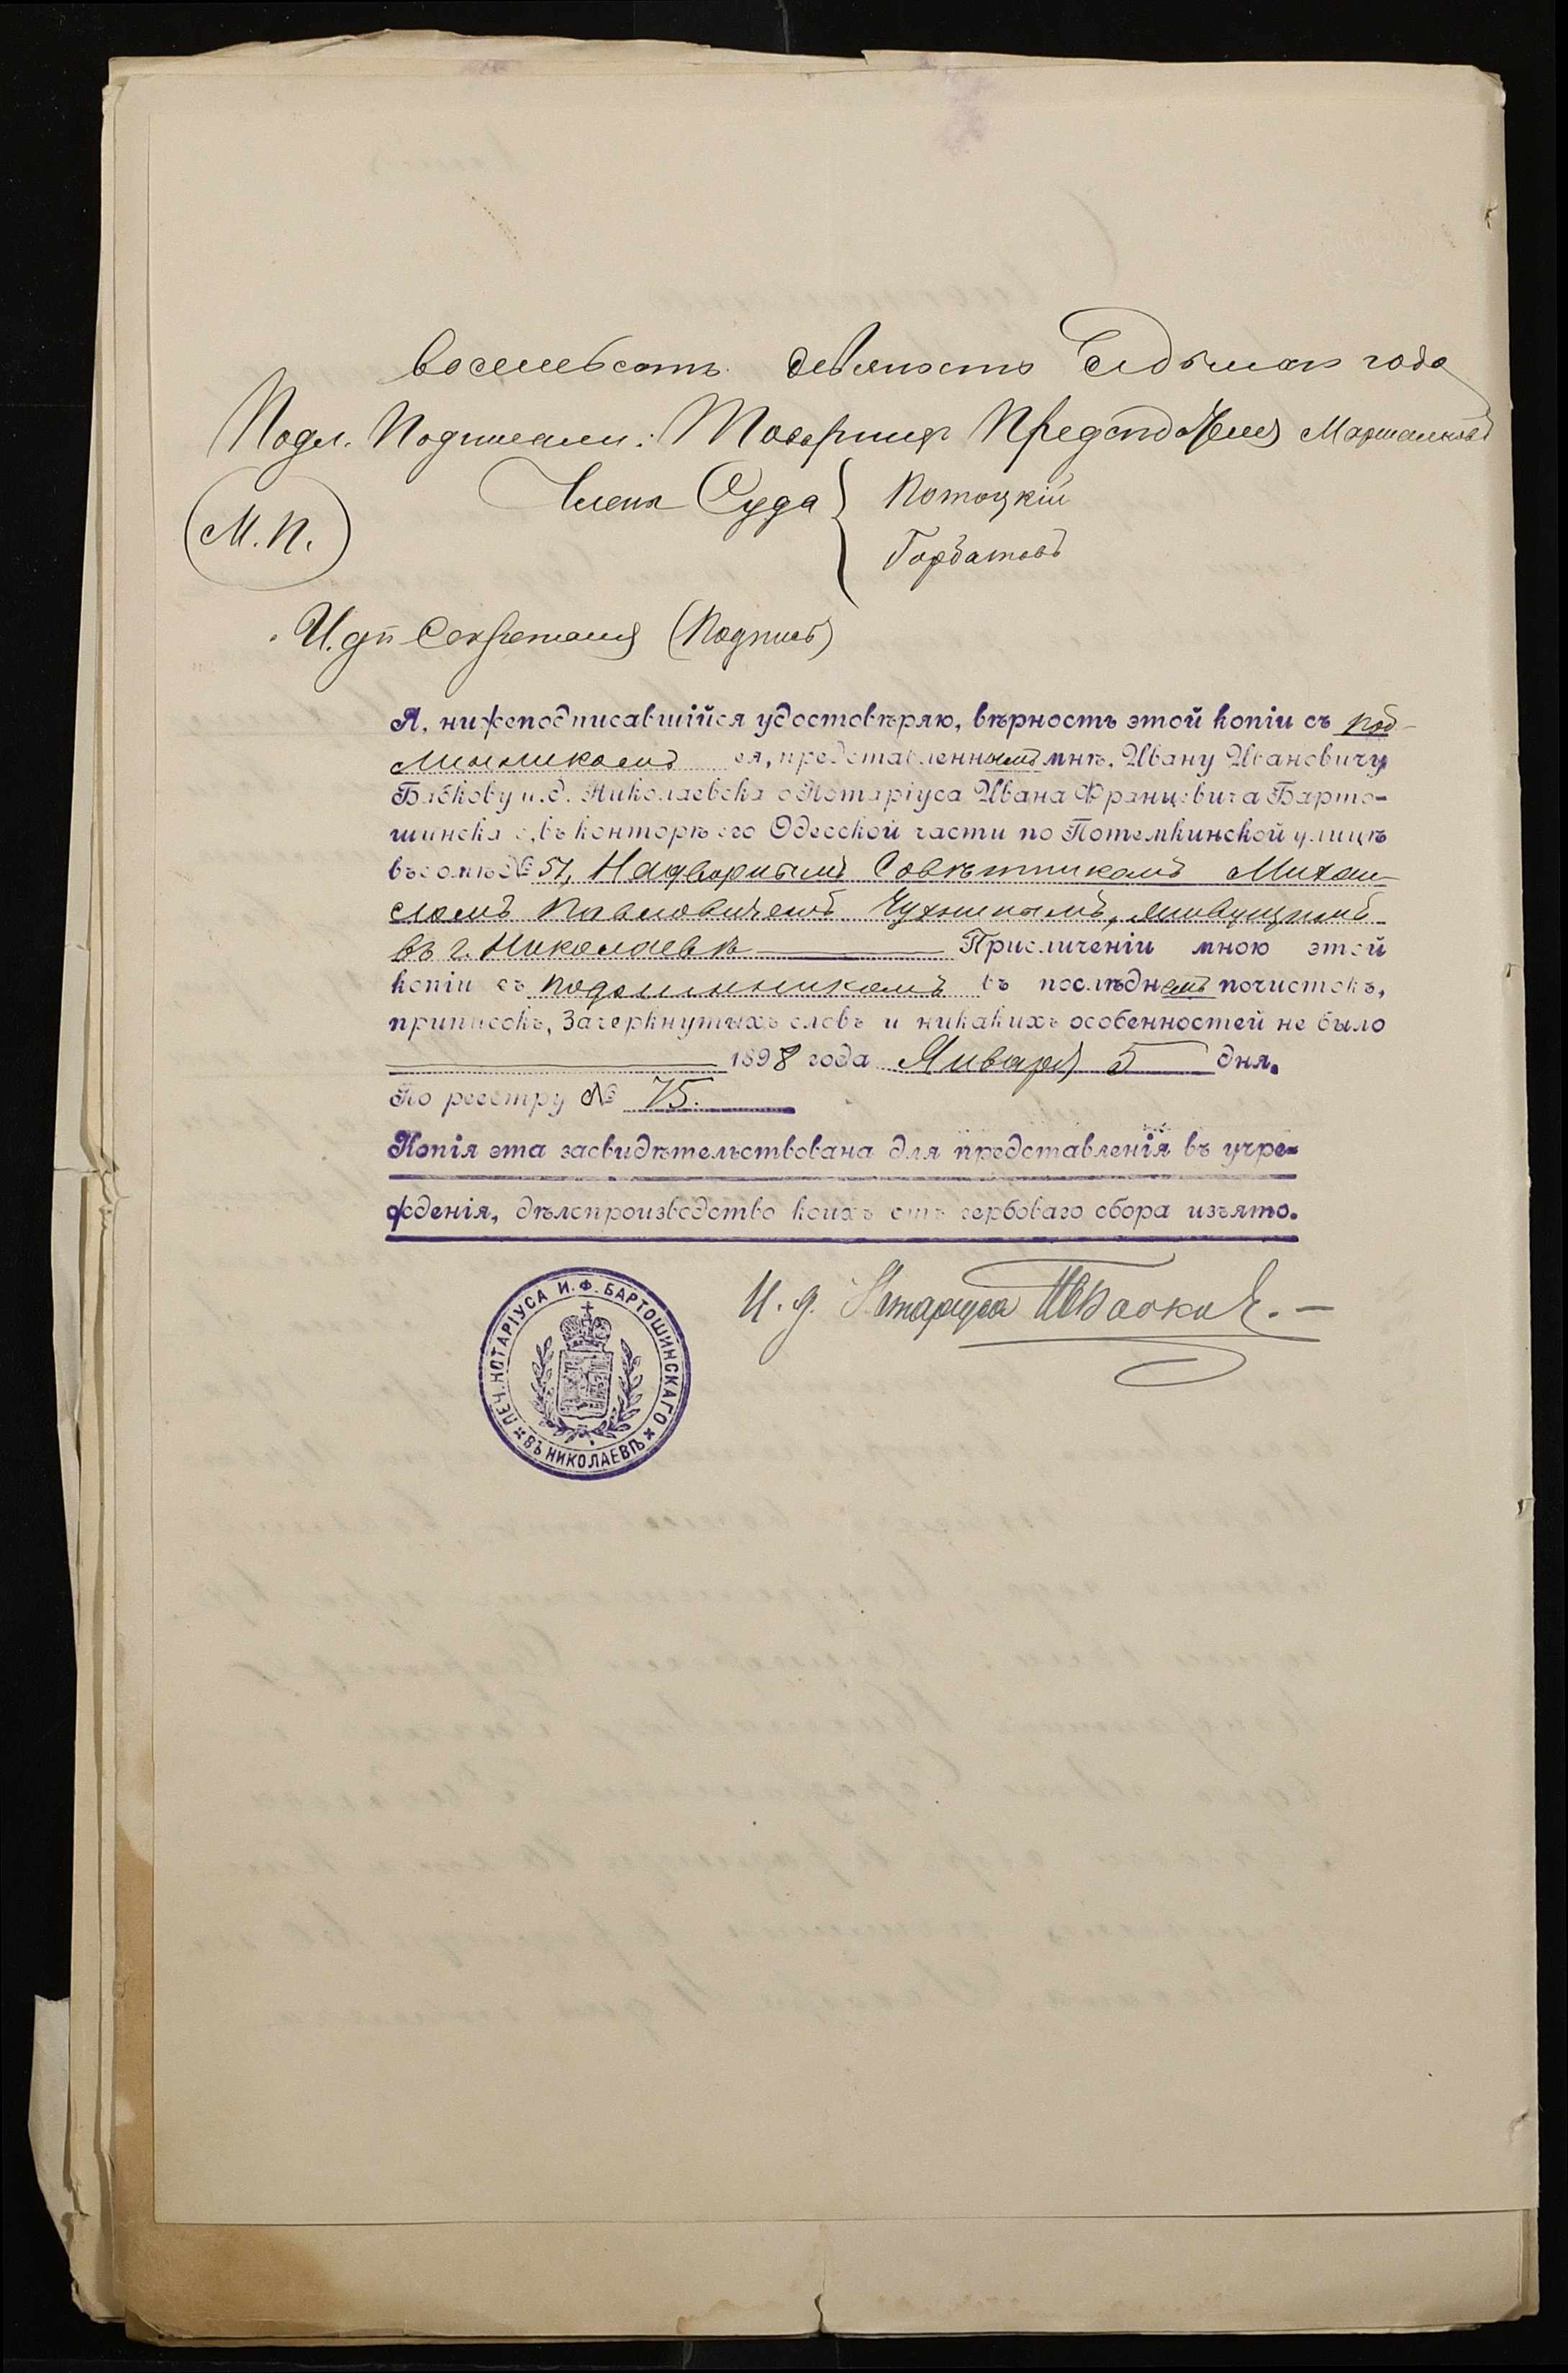 восемьсотъ девяносто седьмого года
Подл. Подписали: Товарищъ Предсѣдателя
Члены Суда { Потоцкій
Горбатовъ
(М.П.)
И. д. Секретаря (Подпись)
Я, нижеподписавшійся удостовѣряю, вѣрность этой копіи съ под-
линникомъ ея, представленнымъ мнѣ, Ивану Ивановичу
Бабкову и.д. Николаевскаго Нотаріуса Ивана Францевича Барто-
шинскаго, въ конторѣ его Одесской части по Потемкинской улицѣ
въ домѣ № 51, Надворнымъ Совѣтникомъ Михаи-
ломъ Павловичемъ Чухнинымъ, живущимъ
въ г. Николаевѣ При сличеніи мною этой
копіи съ подлинникомъ въ послѣднемъ почистокъ,
приписокъ, Зачеркнутыхъ словъ и никакихъ особенностей не было
1898 года Января 5 дня.
По реестру № 75.
Копія эта засвидѣтельствована для представленія въ учре-
жденія, дѣлопроизводство коихъ отъ гербоваго сбора изъято.
И. д. Нотаріуса ИБабковъ. —
ПЕЧ. НОТАРІУСА И. Ф. БАРТОШИНСКАГО
ВЪ НИКОЛАЕВѢ